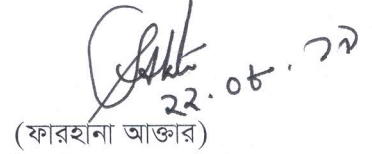 ২২.০৮.১৯
(ফারহানা আক্তার)